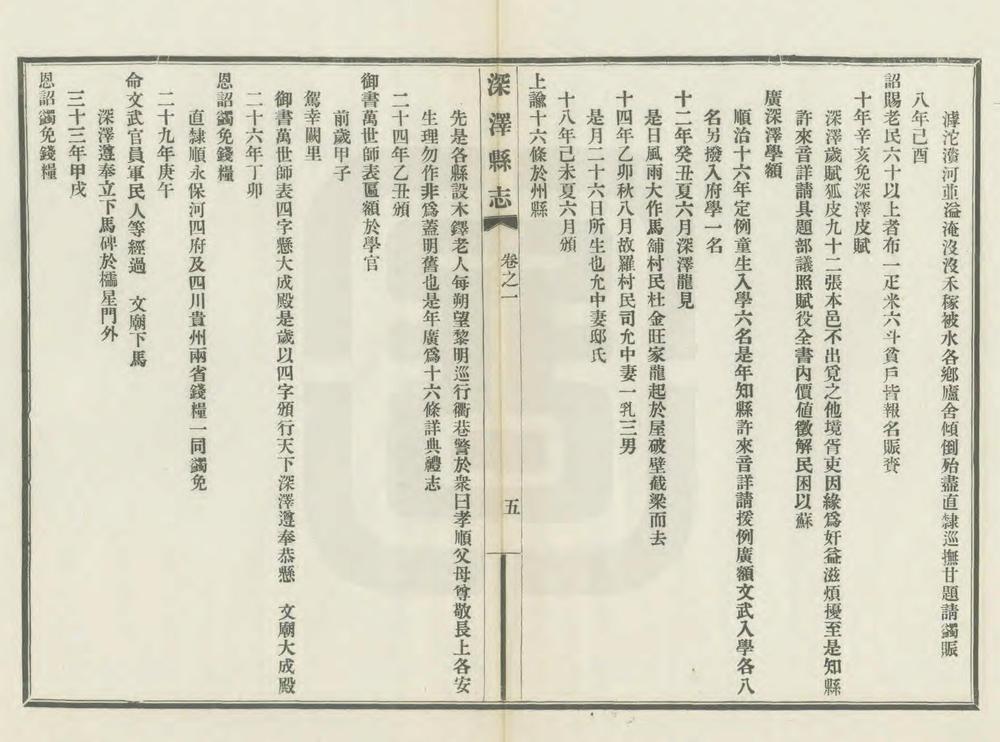 滹沱滋河並溢淹沒沒禾稼被水各鄉廬舍傾倒殆盡直隸巡撫甘題請蠲賑
八年己酉
詔賜老民六十以上者布一疋米六斗貧戶皆報名賑賚
十年辛亥免深澤皮賦
深澤歲賦狐皮九十二張本邑不出覓之他境胥吏因緣爲奸益滋煩擾至是知縣
許來音詳請具題部議照賦役全書內價值徵解民困以蘇
廣深澤學額
順治十六年定例童生入學六名是年知縣許來音詳請援例廣額文武入學各八
名另撥入府學一名
十二年癸丑夏六月深澤龍見
是日風雨大作馬舖村民杜金旺家龍起於屋破壁截梁而去
十四年乙卯秋八月故羅村民司允中妻一乳三男
是月二十六日所生也允中妻邸氏
十八年己未夏六月頒
上諭十六條於州縣
深澤縣志
卷之一
五
先是各縣設木鐸老人每朔望黎明巡行衢巷警於衆曰孝順父母尊敬長上各安
生理勿作非爲蓋明舊也是年廣爲十六條詳典禮志
二十四年乙丑頒
御書萬世師表匾額於學官
前歲甲子
駕幸闕里
御書萬世師表四字懸大成殿是歲以四字頒行天下深澤遵奉恭懸 文廟大成殿
二十六年丁卯
恩詔蠲免錢糧
直隸順永保河四府及四川貴州兩省錢糧一同蠲免
二十九年庚午
命文武官員軍民人等經過 文廟下馬
深澤遵奉立下馬碑於櫺星門外
三十三年甲戌
恩詔蠲免錢糧